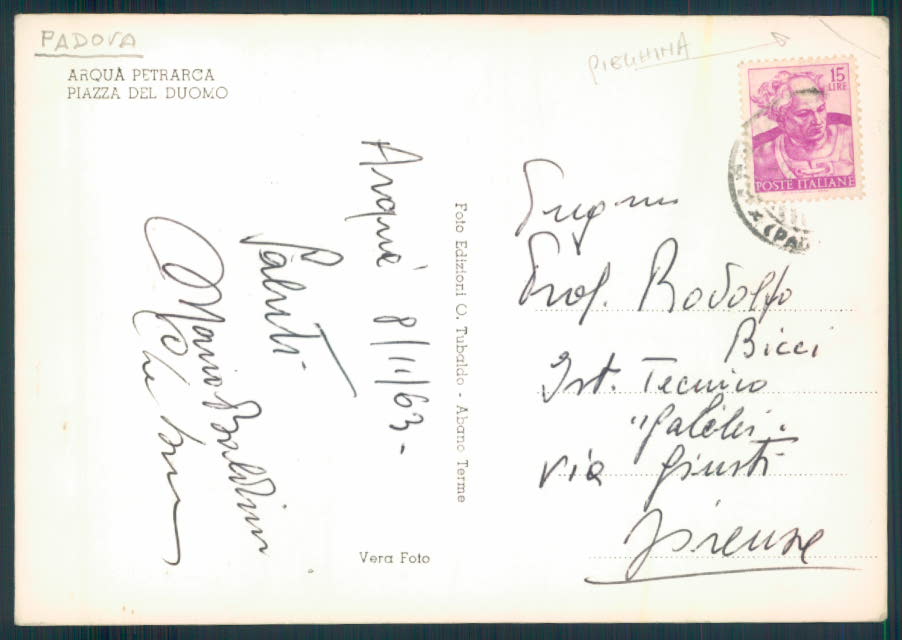 PADOVA
ARQUÀ PETRARCA
PIAZZA DEL DUOMO
PIEGHINA
15
LIRE
POSTE ITALIANE
(PAD
Arquà 8/11/63-
Saluti
Mario Baldini
Foto Edizioni O. Tubaldo - Abano Terme
Vera Foto
Prof. Rodolfo
Bicci
Ist. Tecnico
"Galilei"
Via Giusti
Firenze